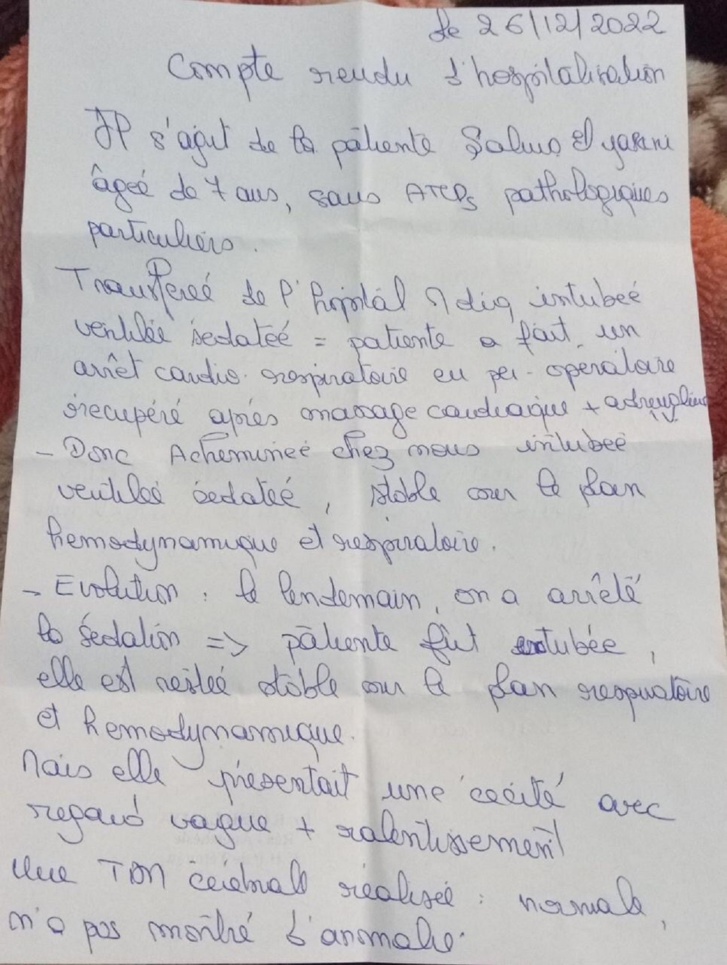 le 26/12/2022
Compte rendu d'hospitalisation
Il s'agit de la patiente Salma El
âgée de 7 ans, sans ATCDs pathologiques
particuliers.
Transferée de l'hopital Mdiq intubeé
ventilée sedatéé = patiente a fait un
arrêt cardio-respiratoire en per-operatoire
récupéré après massage cardiaque + adrenaline
IV
- Donc Acheminée chez nous intubeé
ventilée sedatéé, stable sur le plan
hemodynamique et respiratoire.
- Evolution : le lendemain, on a arrêté
la sedation => patiente fût extubée,
elle est restée stable sur le plan respiratoire
et hemodynamique.
Mais elle présentait une cécité avec
regard vague + ralentissement
Une TDM cérébrale réalisée : normale,
n'a pas montré d'anomalie.